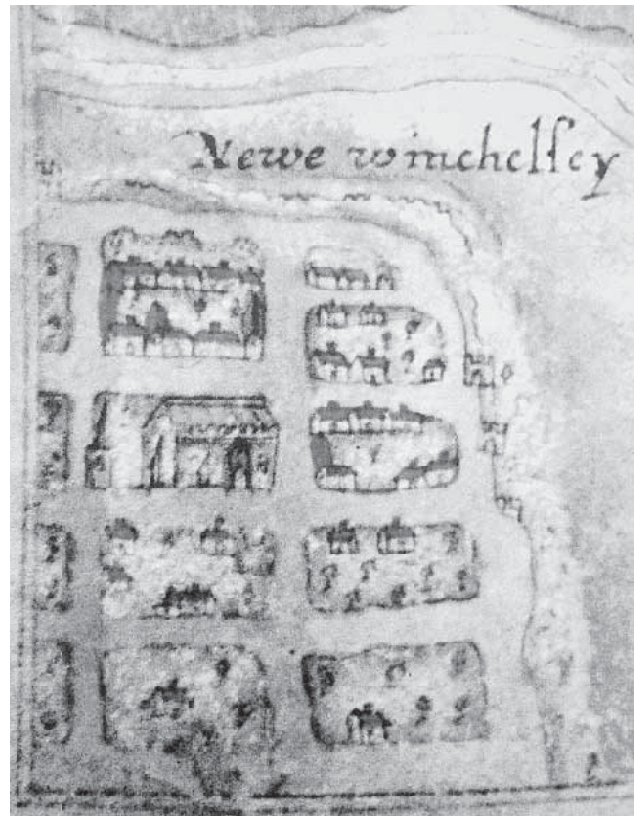 Newe winchelsey